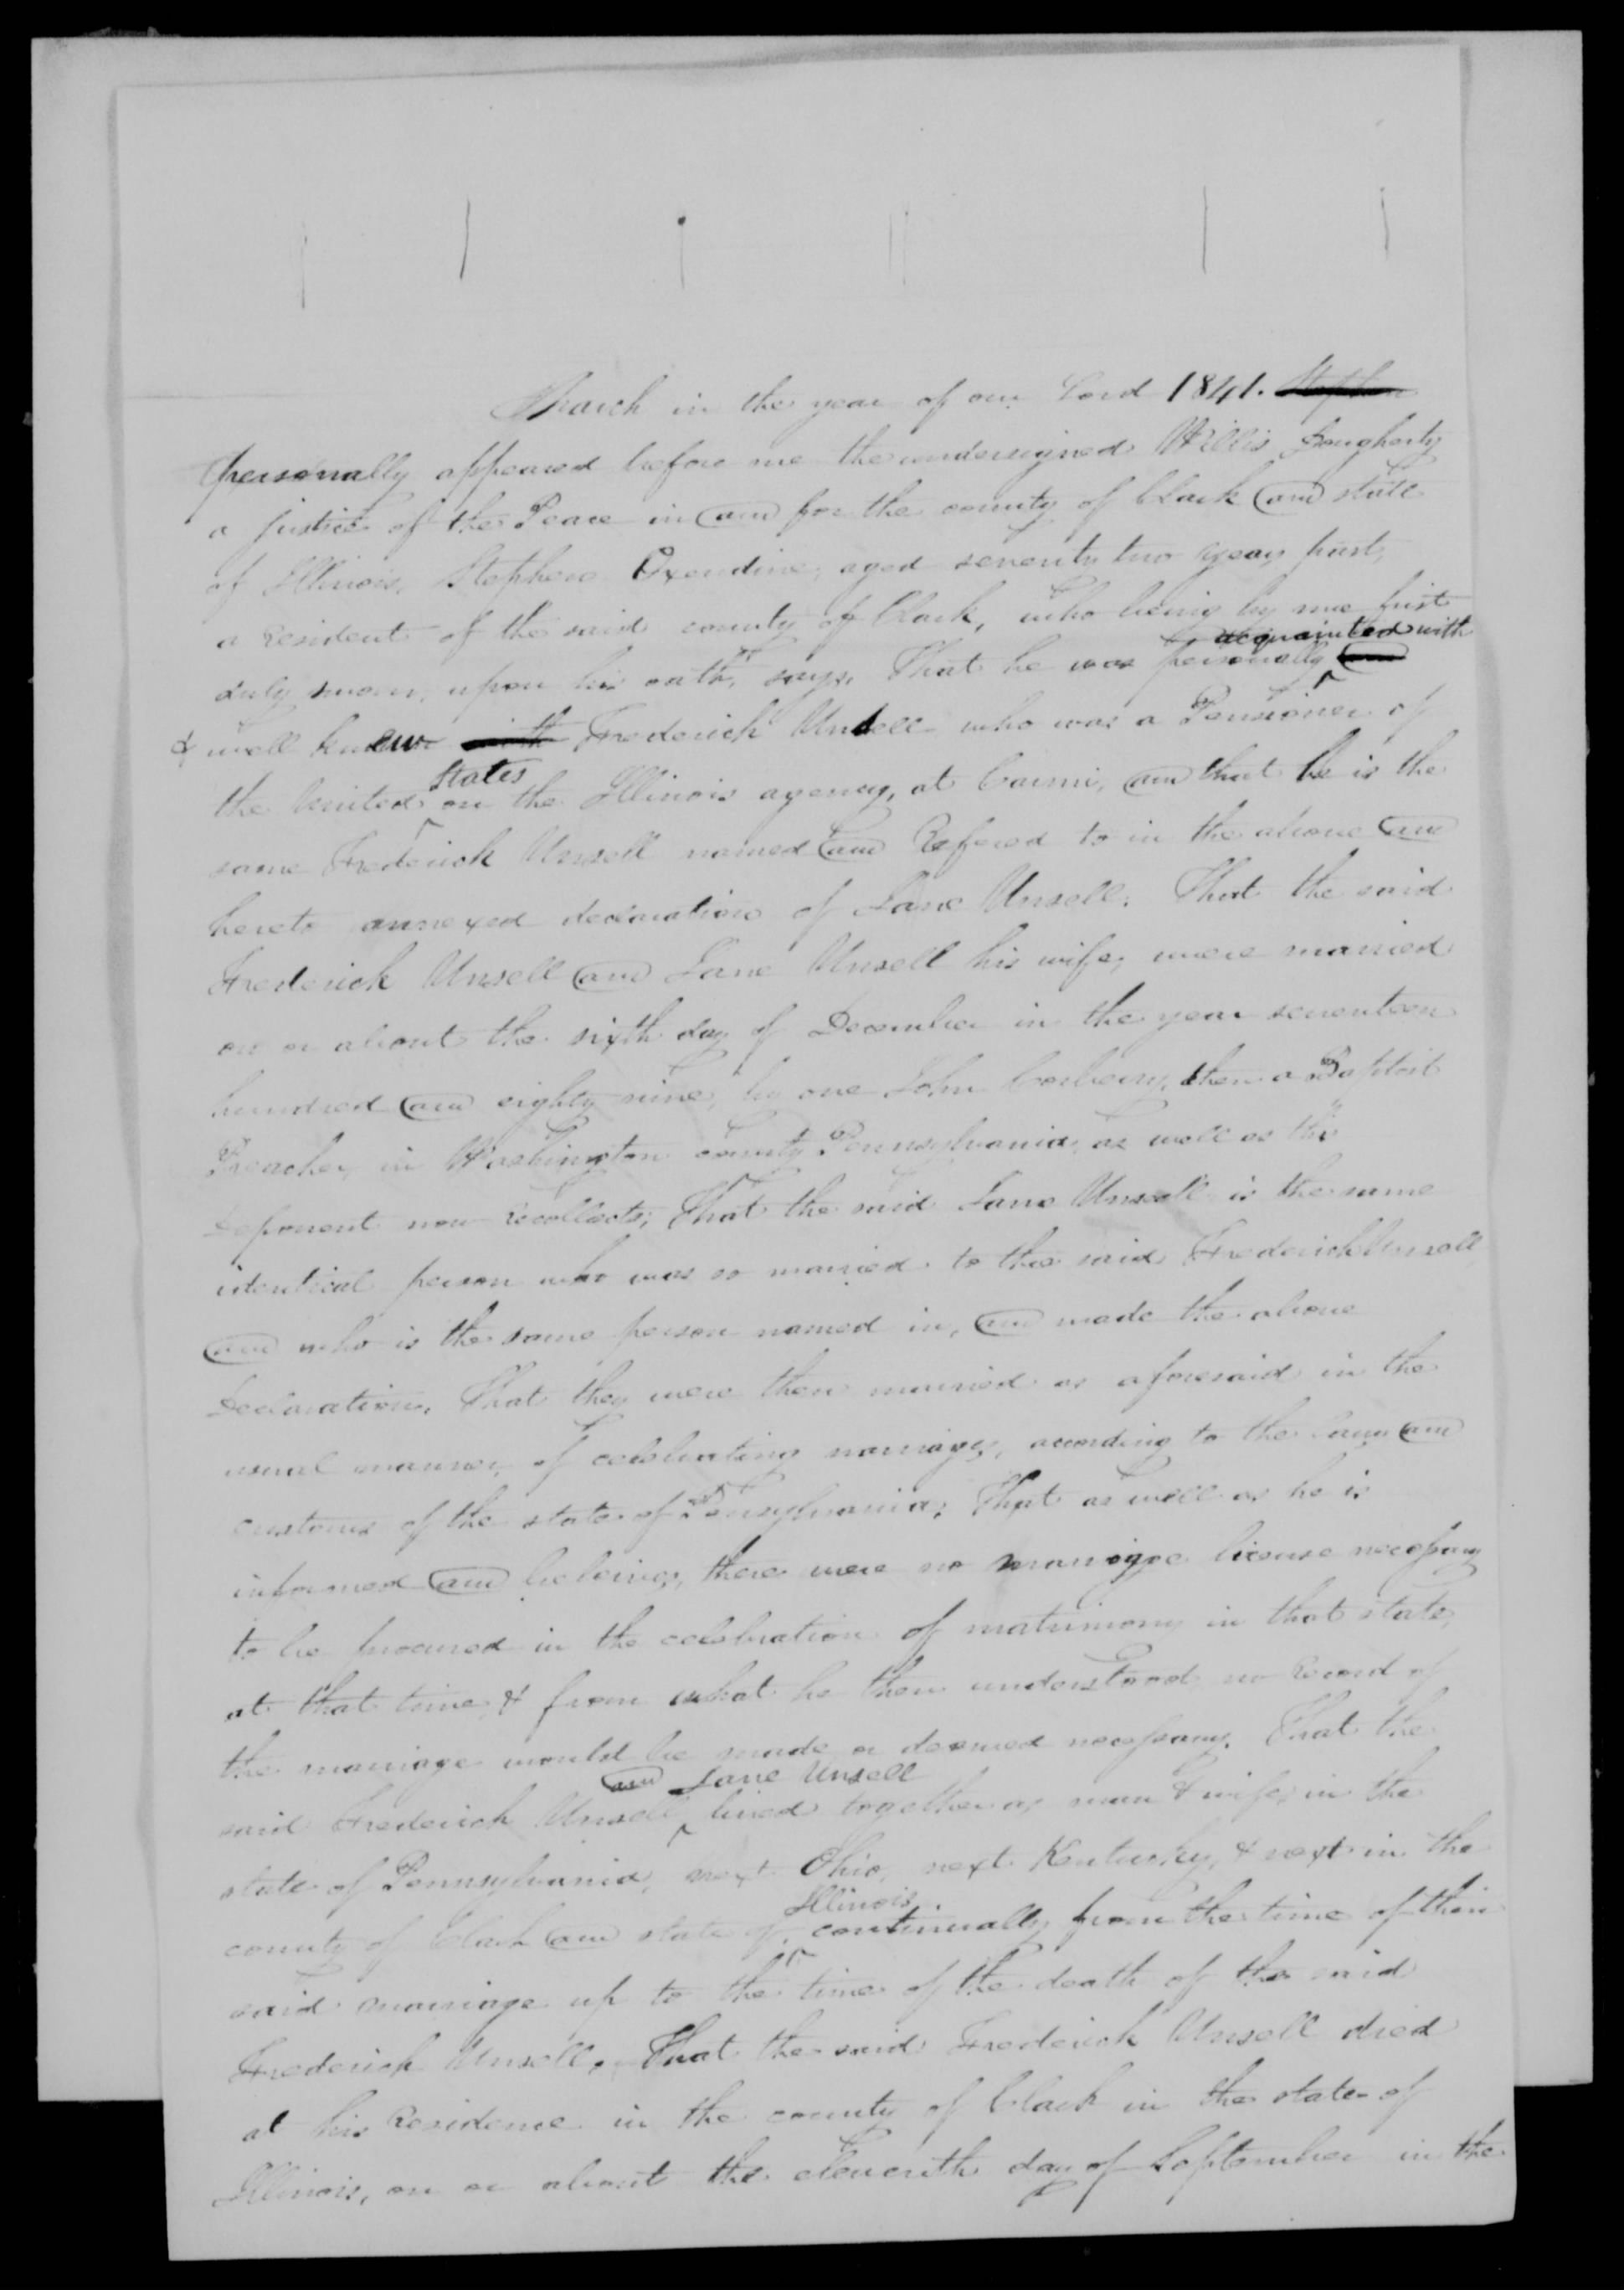 March in the year of our Lord 1841. Stephen
personally appeared before me the undersigned Willis Dougherty
a justice of the Peace in and for the county of Clark and state
of Illinois, Stephen Oxendine, aged seventy two years past,
a resident of the said county of Clark, who being by me first
acquainted with
duly sworn, upon his oath, says, That he was personally and
& well knew with Frederick Unsell who was a Pensioner of
States
the United on the Illinois agency, at Carmi, and that he is the
same Frederick Unsell named and Refered to in the above and
hereto annexed declaration of Jane Unsell. That the said
Frederick Unsell and Jane Unsell his wife, were married
on or about the sixth day of December in the year seventeen
hundred and eighty nine, by one John Corbean, then a Baptist
Preacher, in Washington county Pennsylvania, as well as this
deponent now recollects; That the said Jane Unsell is the same
identical person who was so married to the said Frederick Unsell,
and who is the same person named in, and made the above
Declaration, That they were then married as aforesaid in the
usual manner of celebrating marriages, according to the laws and
customs of the state of Pennsylvania; That as well as he is
informed and beleives, there were no marriage license necessary
to be procured in the celebration of matrimony in that state,
at that time, & from what he then understood no Record of
the marriage would be made or deemed necessary. That the
and Jane Unsell
said Frederick Unsell lived together as man & wife in the
state of Pennsylvania, next Ohio, next Kentucky, & next in the
Illinois.
county of Clark and state of, continually from the time of their
said marriage up to the time of the death of the said
Frederick Unsell. That the said Frederick Unsell died
at his Residence in the county of Clark in the state of
Illinois, on or about the eleventh day of September in the